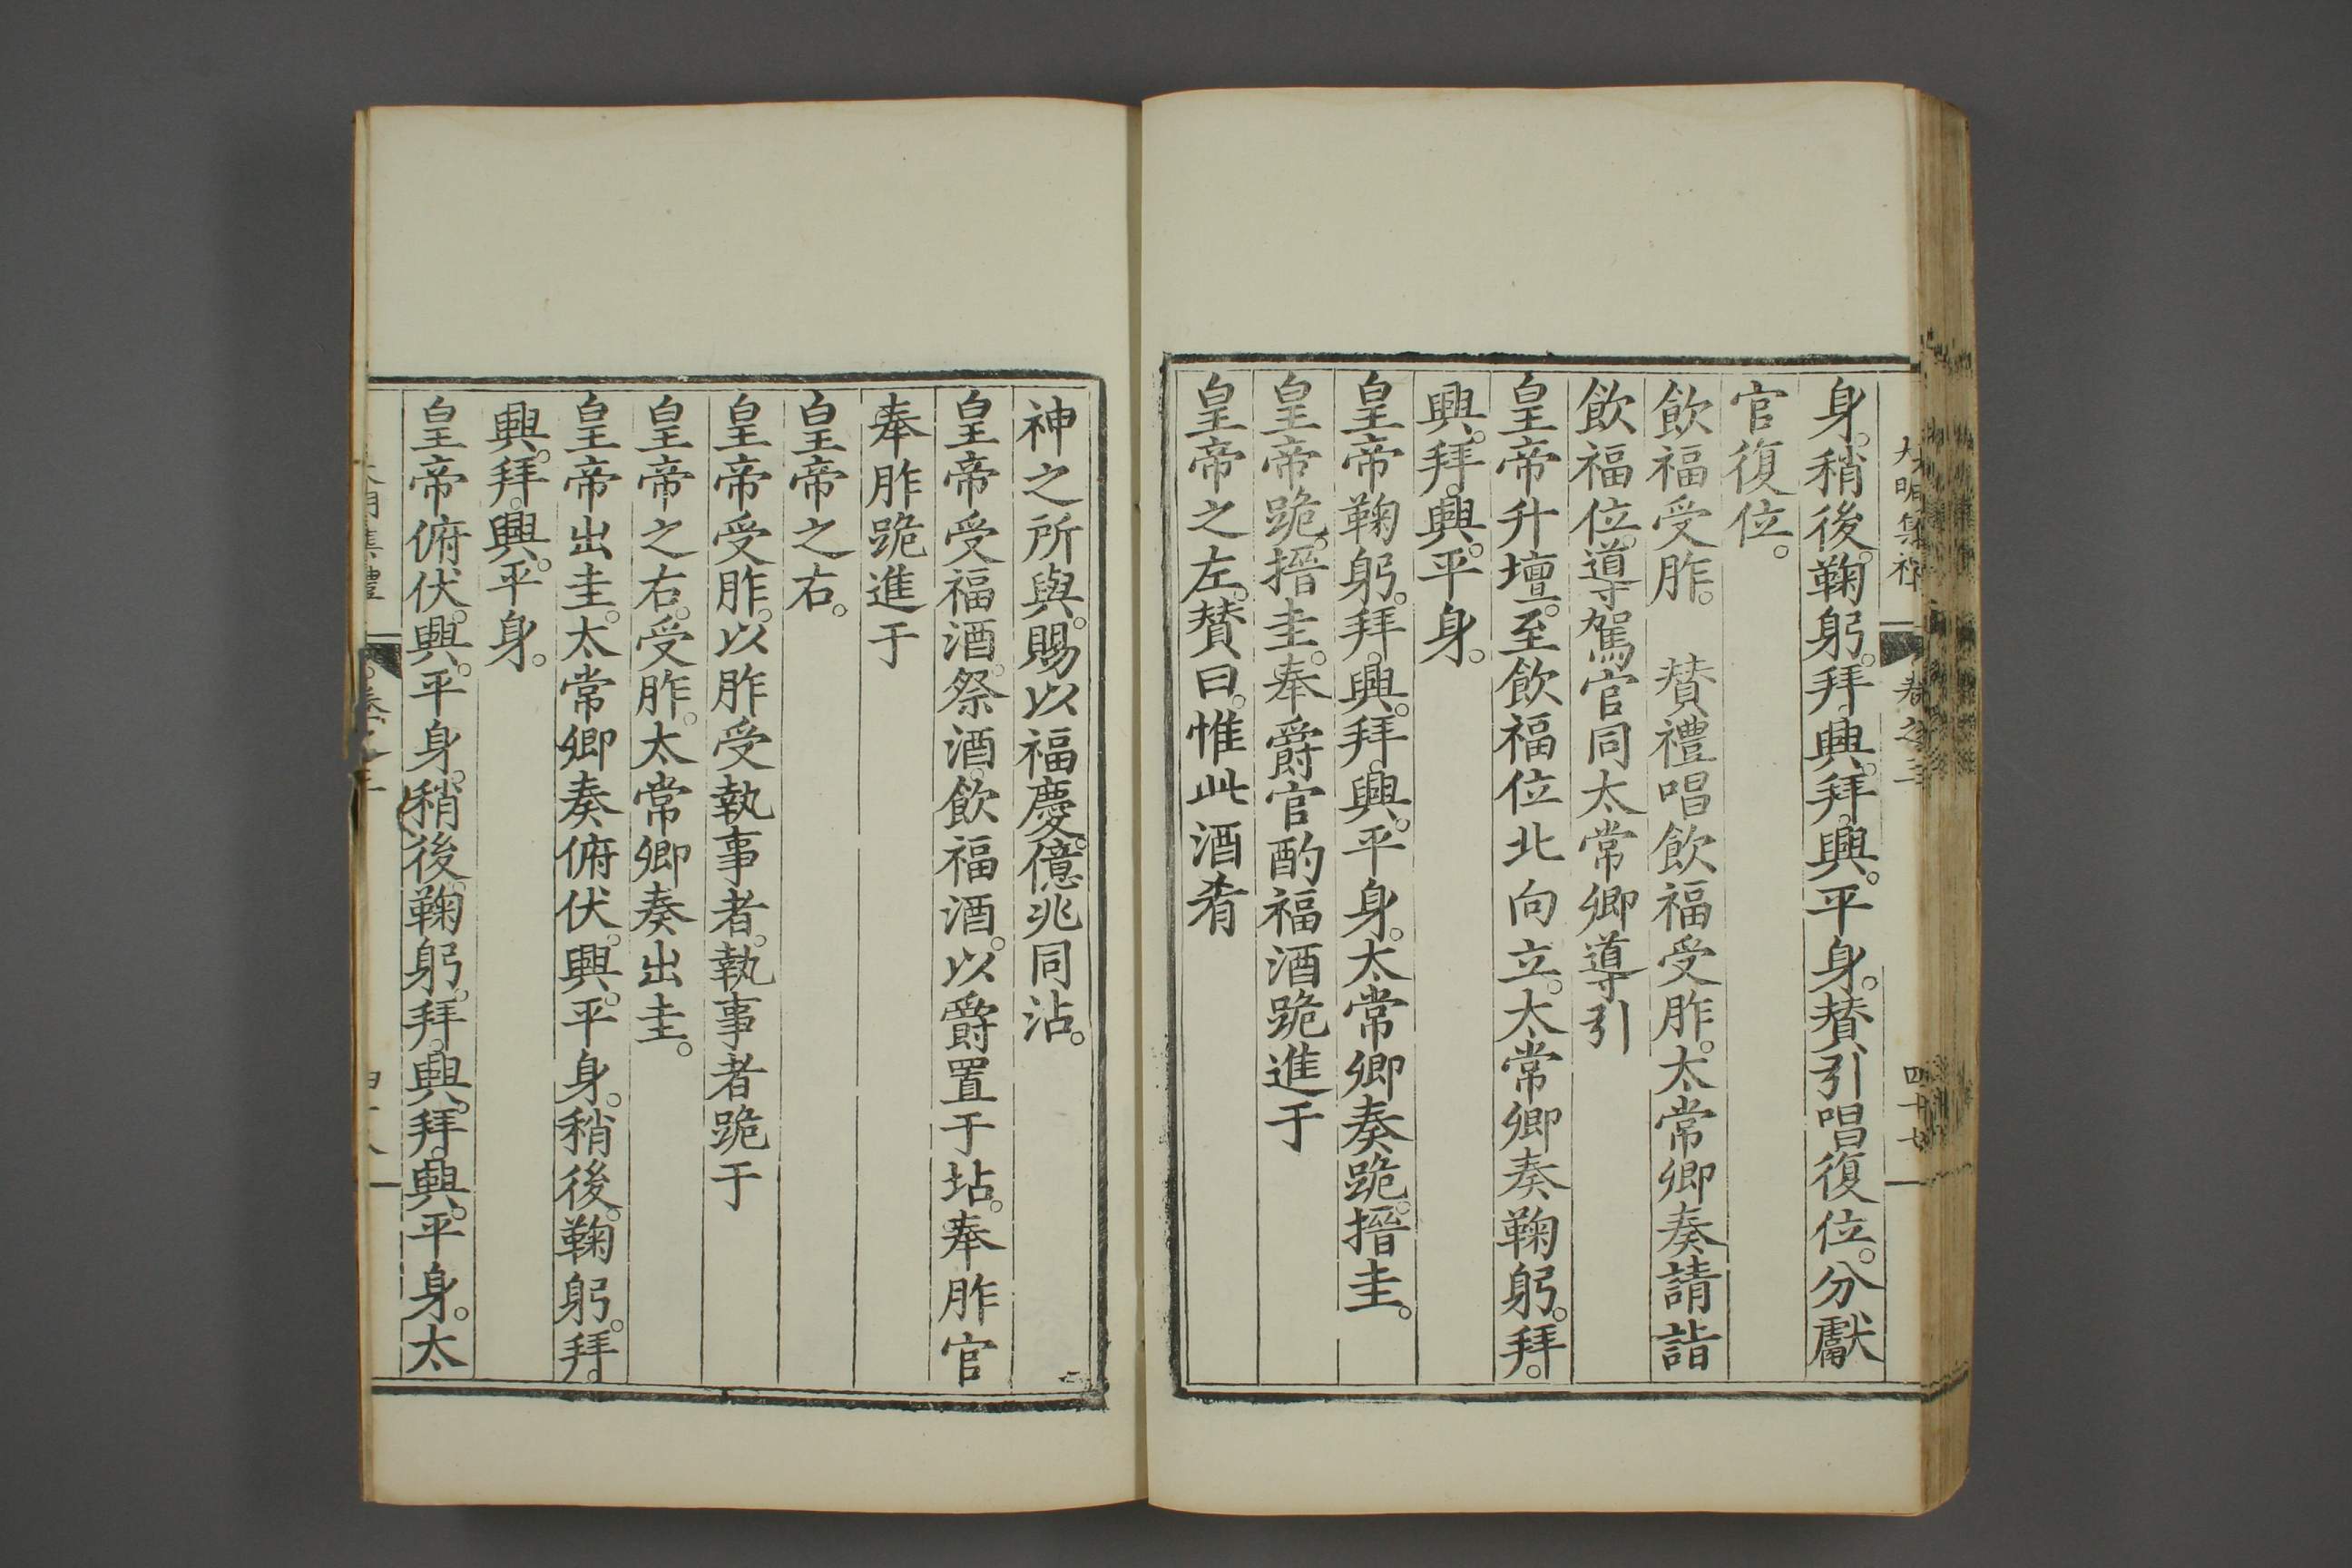 大明集禮 卷之三 四十七
身。稍後。鞠躬。拜。興。拜。興。平身。賛引唱復位。分獻
官復位。
飲福受胙。 賛禮唱飲福受胙。太常卿奏請詣
飲福位。導駕官同太常卿導引
皇帝升壇。至飲福位北向立。太常卿奏鞠躬。拜。
興。拜。興。平身。
皇帝鞠躬。拜。興。拜。興。平身。太常卿奏跪。搢圭。
皇帝跪。搢圭。奉爵官酌福酒跪進于
皇帝之左。賛曰。惟此酒肴
神之所與。賜以福慶。億兆同沾。
皇帝受福酒。祭酒。飲福酒。以爵置于坫。奉胙官
奉胙跪進于
皇帝之右。
皇帝受胙。以胙受執事者。執事者跪于
皇帝之右。受胙。太常卿奏出圭。
皇帝出圭。太常卿奏俯伏。興。平身。稍後。鞠躬。拜。
興。拜。興。平身。
皇帝俯伏。興。平身。稍後。鞠躬。拜。興。拜。興。平身。太